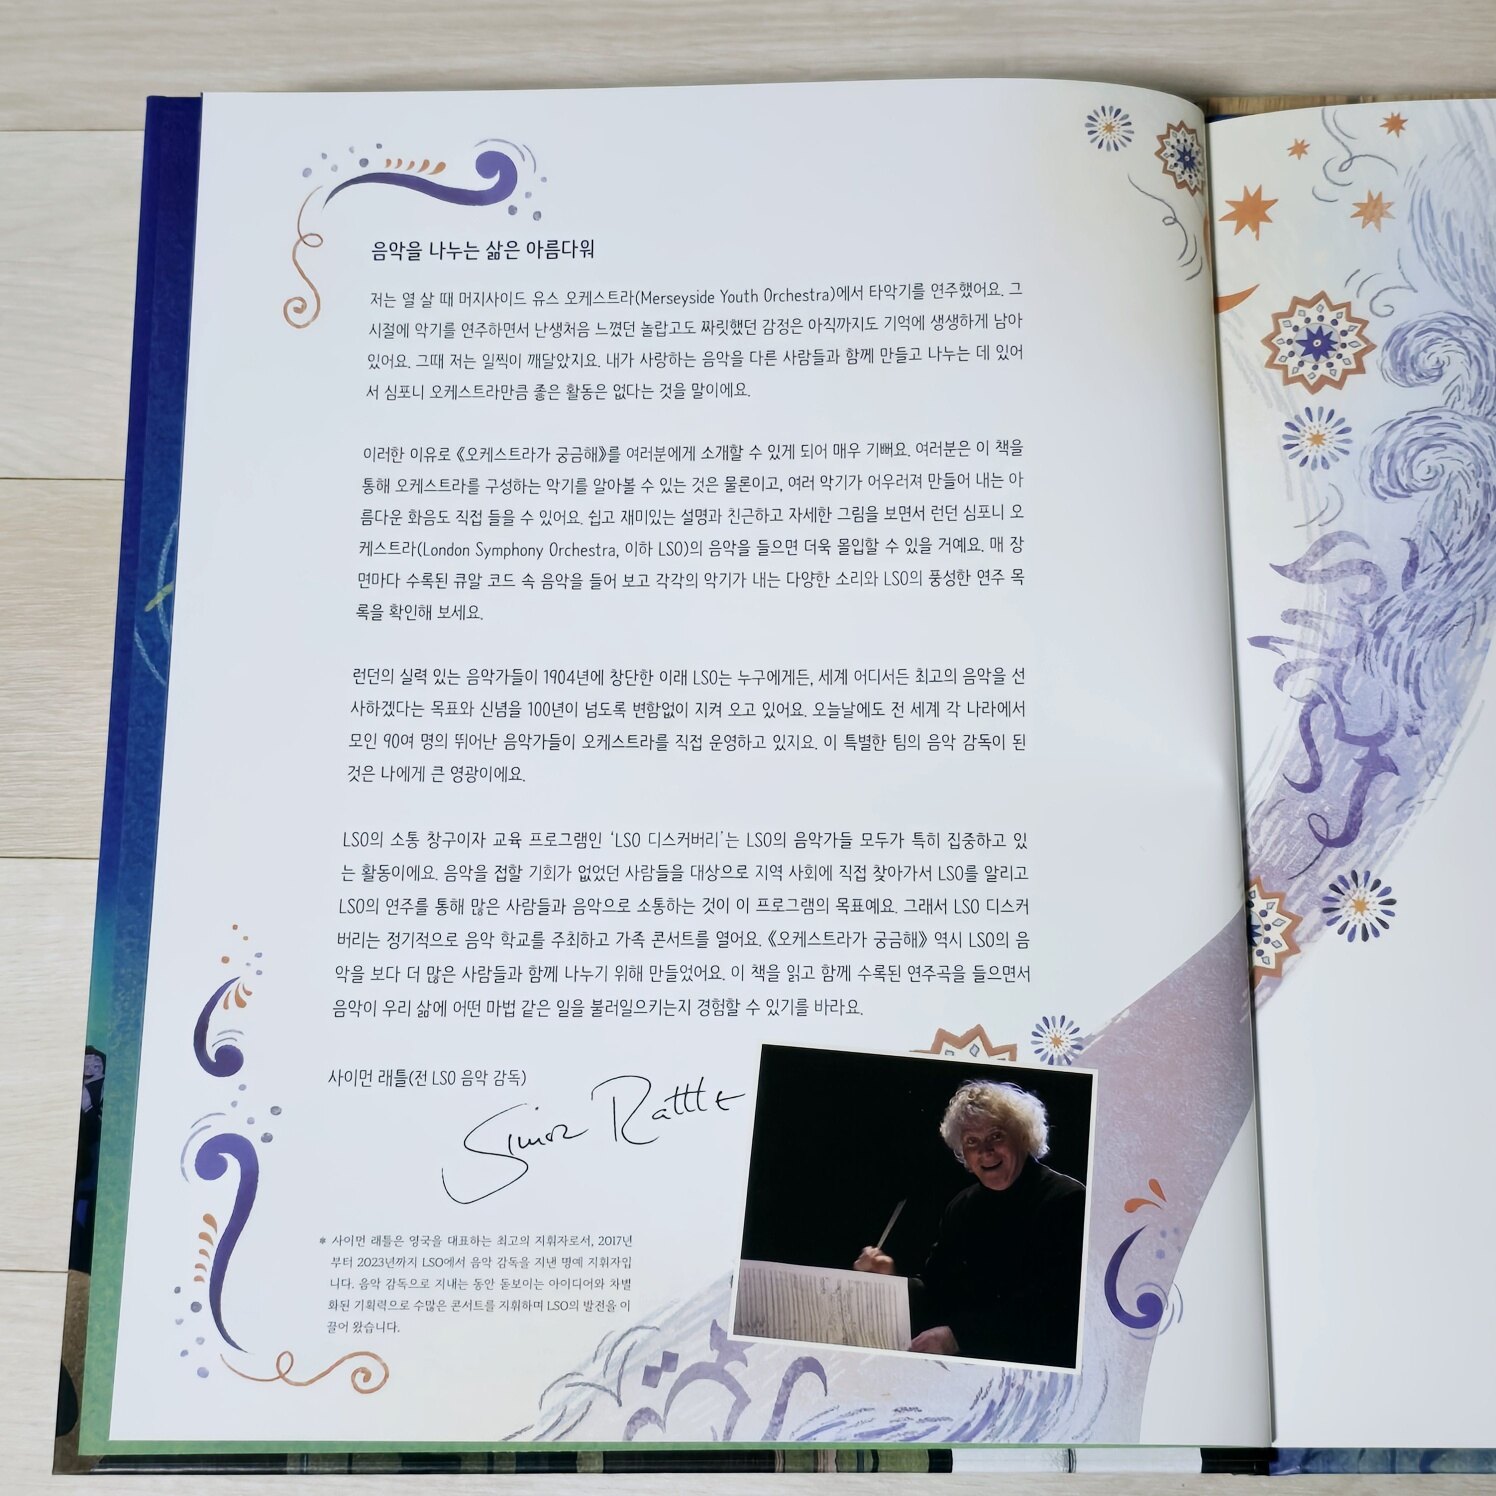 음악을 나누는 삶은 아름다워
저는 열 살 때 머지사이드 유스 오케스트라(Merseyside Youth Orchestra)에서 타악기를 연주했어요. 그
시절에 악기를 연주하면서 난생처음 느꼈던 놀랍고도 짜릿했던 감정은 아직까지도 기억에 생생하게 남아
있어요. 그때 저는 일찍이 깨달았지요. 내가 사랑하는 음악을 다른 사람들과 함께 만들고 나누는 데 있어
서 심포니 오케스트라만큼 좋은 활동은 없다는 것을 말이에요.
이러한 이유로 《오케스트라가 궁금해》를 여러분에게 소개할 수 있게 되어 매우 기뻐요. 여러분은 이 책을
통해 오케스트라를 구성하는 악기를 알아볼 수 있는 것은 물론이고, 여러 악기가 어우러져 만들어 내는 아
름다운 화음도 직접 들을 수 있어요. 쉽고 재미있는 설명과 친근하고 자세한 그림을 보면서 런던 심포니 오
케스트라(London Symphony Orchestra, 이하 LSO)의 음악을 들으면 더욱 몰입할 수 있을 거예요. 매 장
면마다 수록된 큐알 코드 속 음악을 들어 보고 각각의 악기가 내는 다양한 소리와 LSO의 풍성한 연주 목
록을 확인해 보세요.
런던의 실력 있는 음악가들이 1904년에 창단한 이래 LSO는 누구에게든, 세계 어디서든 최고의 음악을 선
사하겠다는 목표와 신념을 100년이 넘도록 변함없이 지켜 오고 있어요. 오늘날에도 전 세계 각 나라에서
모인 90여 명의 뛰어난 음악가들이 오케스트라를 직접 운영하고 있지요. 이 특별한 팀의 음악 감독이 된
것은 나에게 큰 영광이에요.
LSO의 소통 창구이자 교육 프로그램인 ‘LSO 디스커버리’는 LSO의 음악가들 모두가 특히 집중하고 있
는 활동이에요. 음악을 접할 기회가 없었던 사람들을 대상으로 지역 사회에 직접 찾아가서 LSO를 알리고
LSO의 연주를 통해 많은 사람들과 음악으로 소통하는 것이 이 프로그램의 목표예요. 그래서 LSO 디스커
버리는 정기적으로 음악 학교를 주최하고 가족 콘서트를 열어요. 《오케스트라가 궁금해》 역시 LSO의 음
악을 보다 더 많은 사람들과 함께 나누기 위해 만들었어요. 이 책을 읽고 함께 수록된 연주곡을 들으면서
음악이 우리 삶에 어떤 마법 같은 일을 불러일으키는지 경험할 수 있기를 바라요.
사이먼 래틀(전 LSO 음악 감독)
Simon Rattle
* 사이먼 래틀은 영국을 대표하는 최고의 지휘자로서, 2017년
부터 2023년까지 LSO에서 음악 감독을 지낸 명예 지휘자입
니다. 음악 감독으로 지내는 동안 돋보이는 아이디어와 차별
화된 기획력으로 수많은 콘서트를 지휘하며 LSO의 발전을 이
끌어 왔습니다.